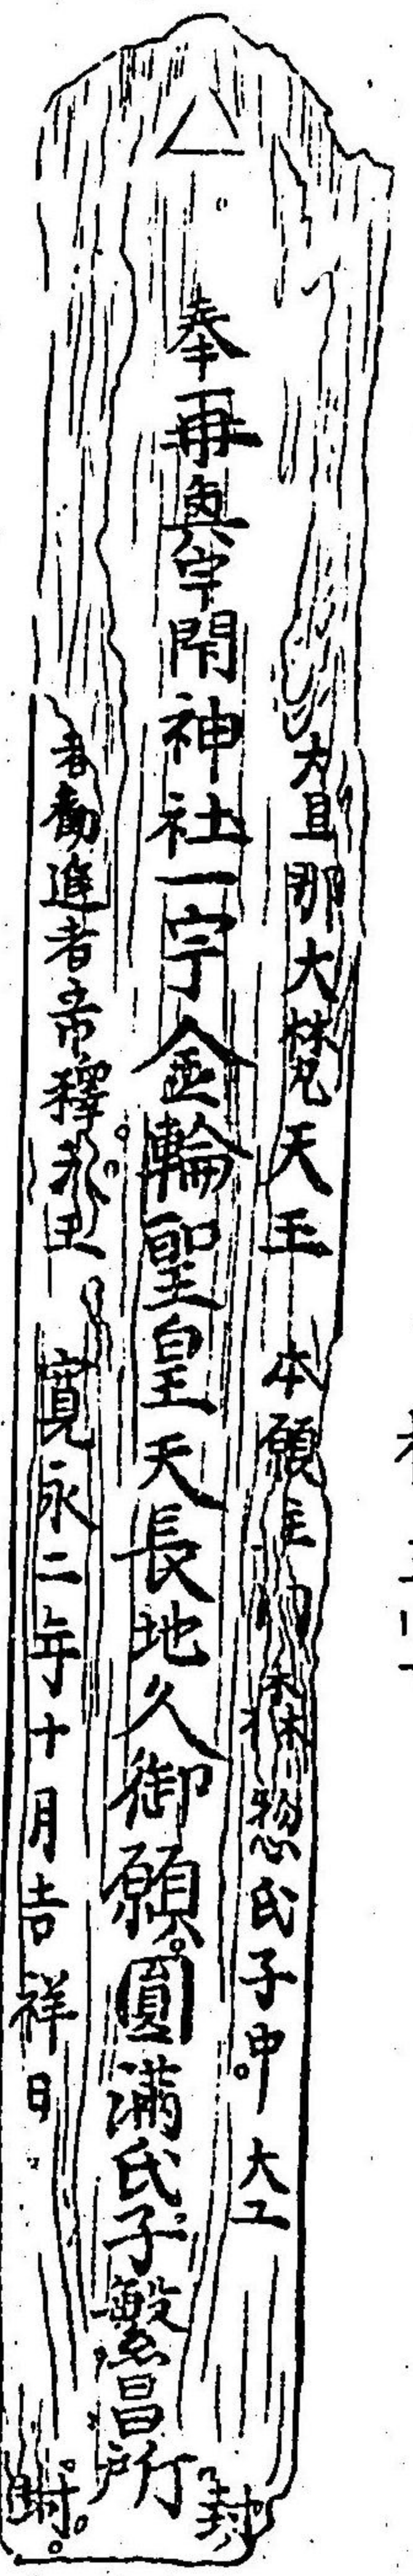 大旦那大梵天王　本願主　惣氏子中　大工　封
奉再興宇閇神社一宇金輪聖皇天長地久御願圓満氏子繁昌所
勸進者帝釋天王　寛永二年十月吉祥日　封